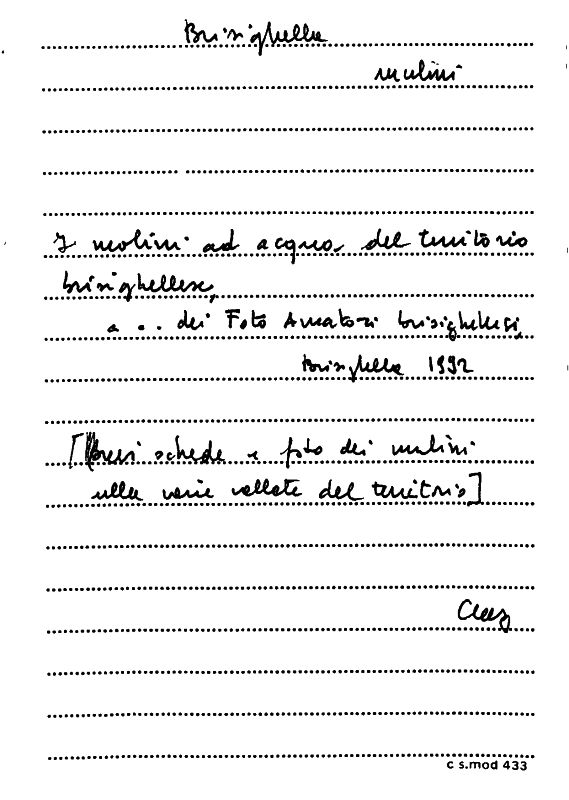 Brisighella
mulini
I molini ad acqua del territorio
brisighellese,
a .. dei Foto Amatori brisighellesi,
Brisighella 1992
[Brevi schede e foto dei mulini
nelle varie vallate del territorio]
c s.mod 433